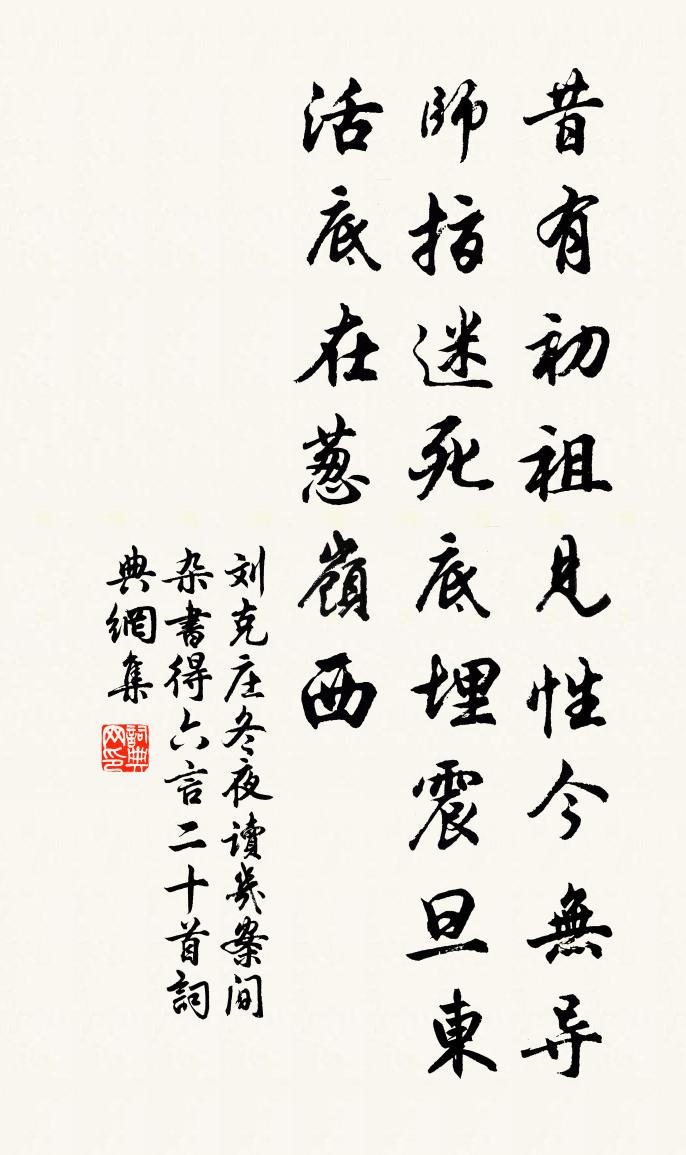 昔有初祖見性今無导
師指迷死底埋震旦東
活底在葱嶺西
刘克庄冬夜讀几案间
杂書得六言二十首詞
典網集
詞典网印